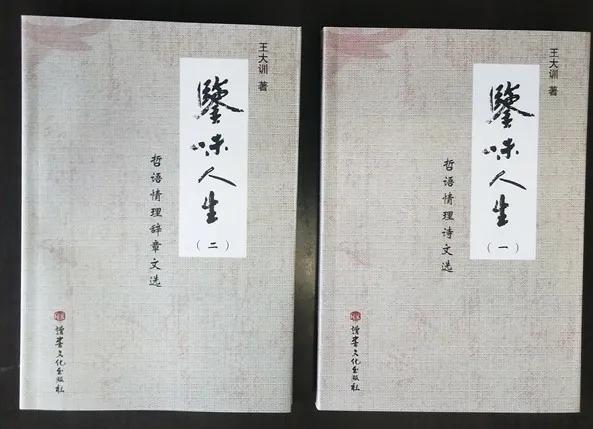 王大训 著
鑒味人生
（二）
哲语情理辞章文选
读书文化出版社
王大训 著
鑒味人生
（一）
哲语情理诗文选
读书文化出版社